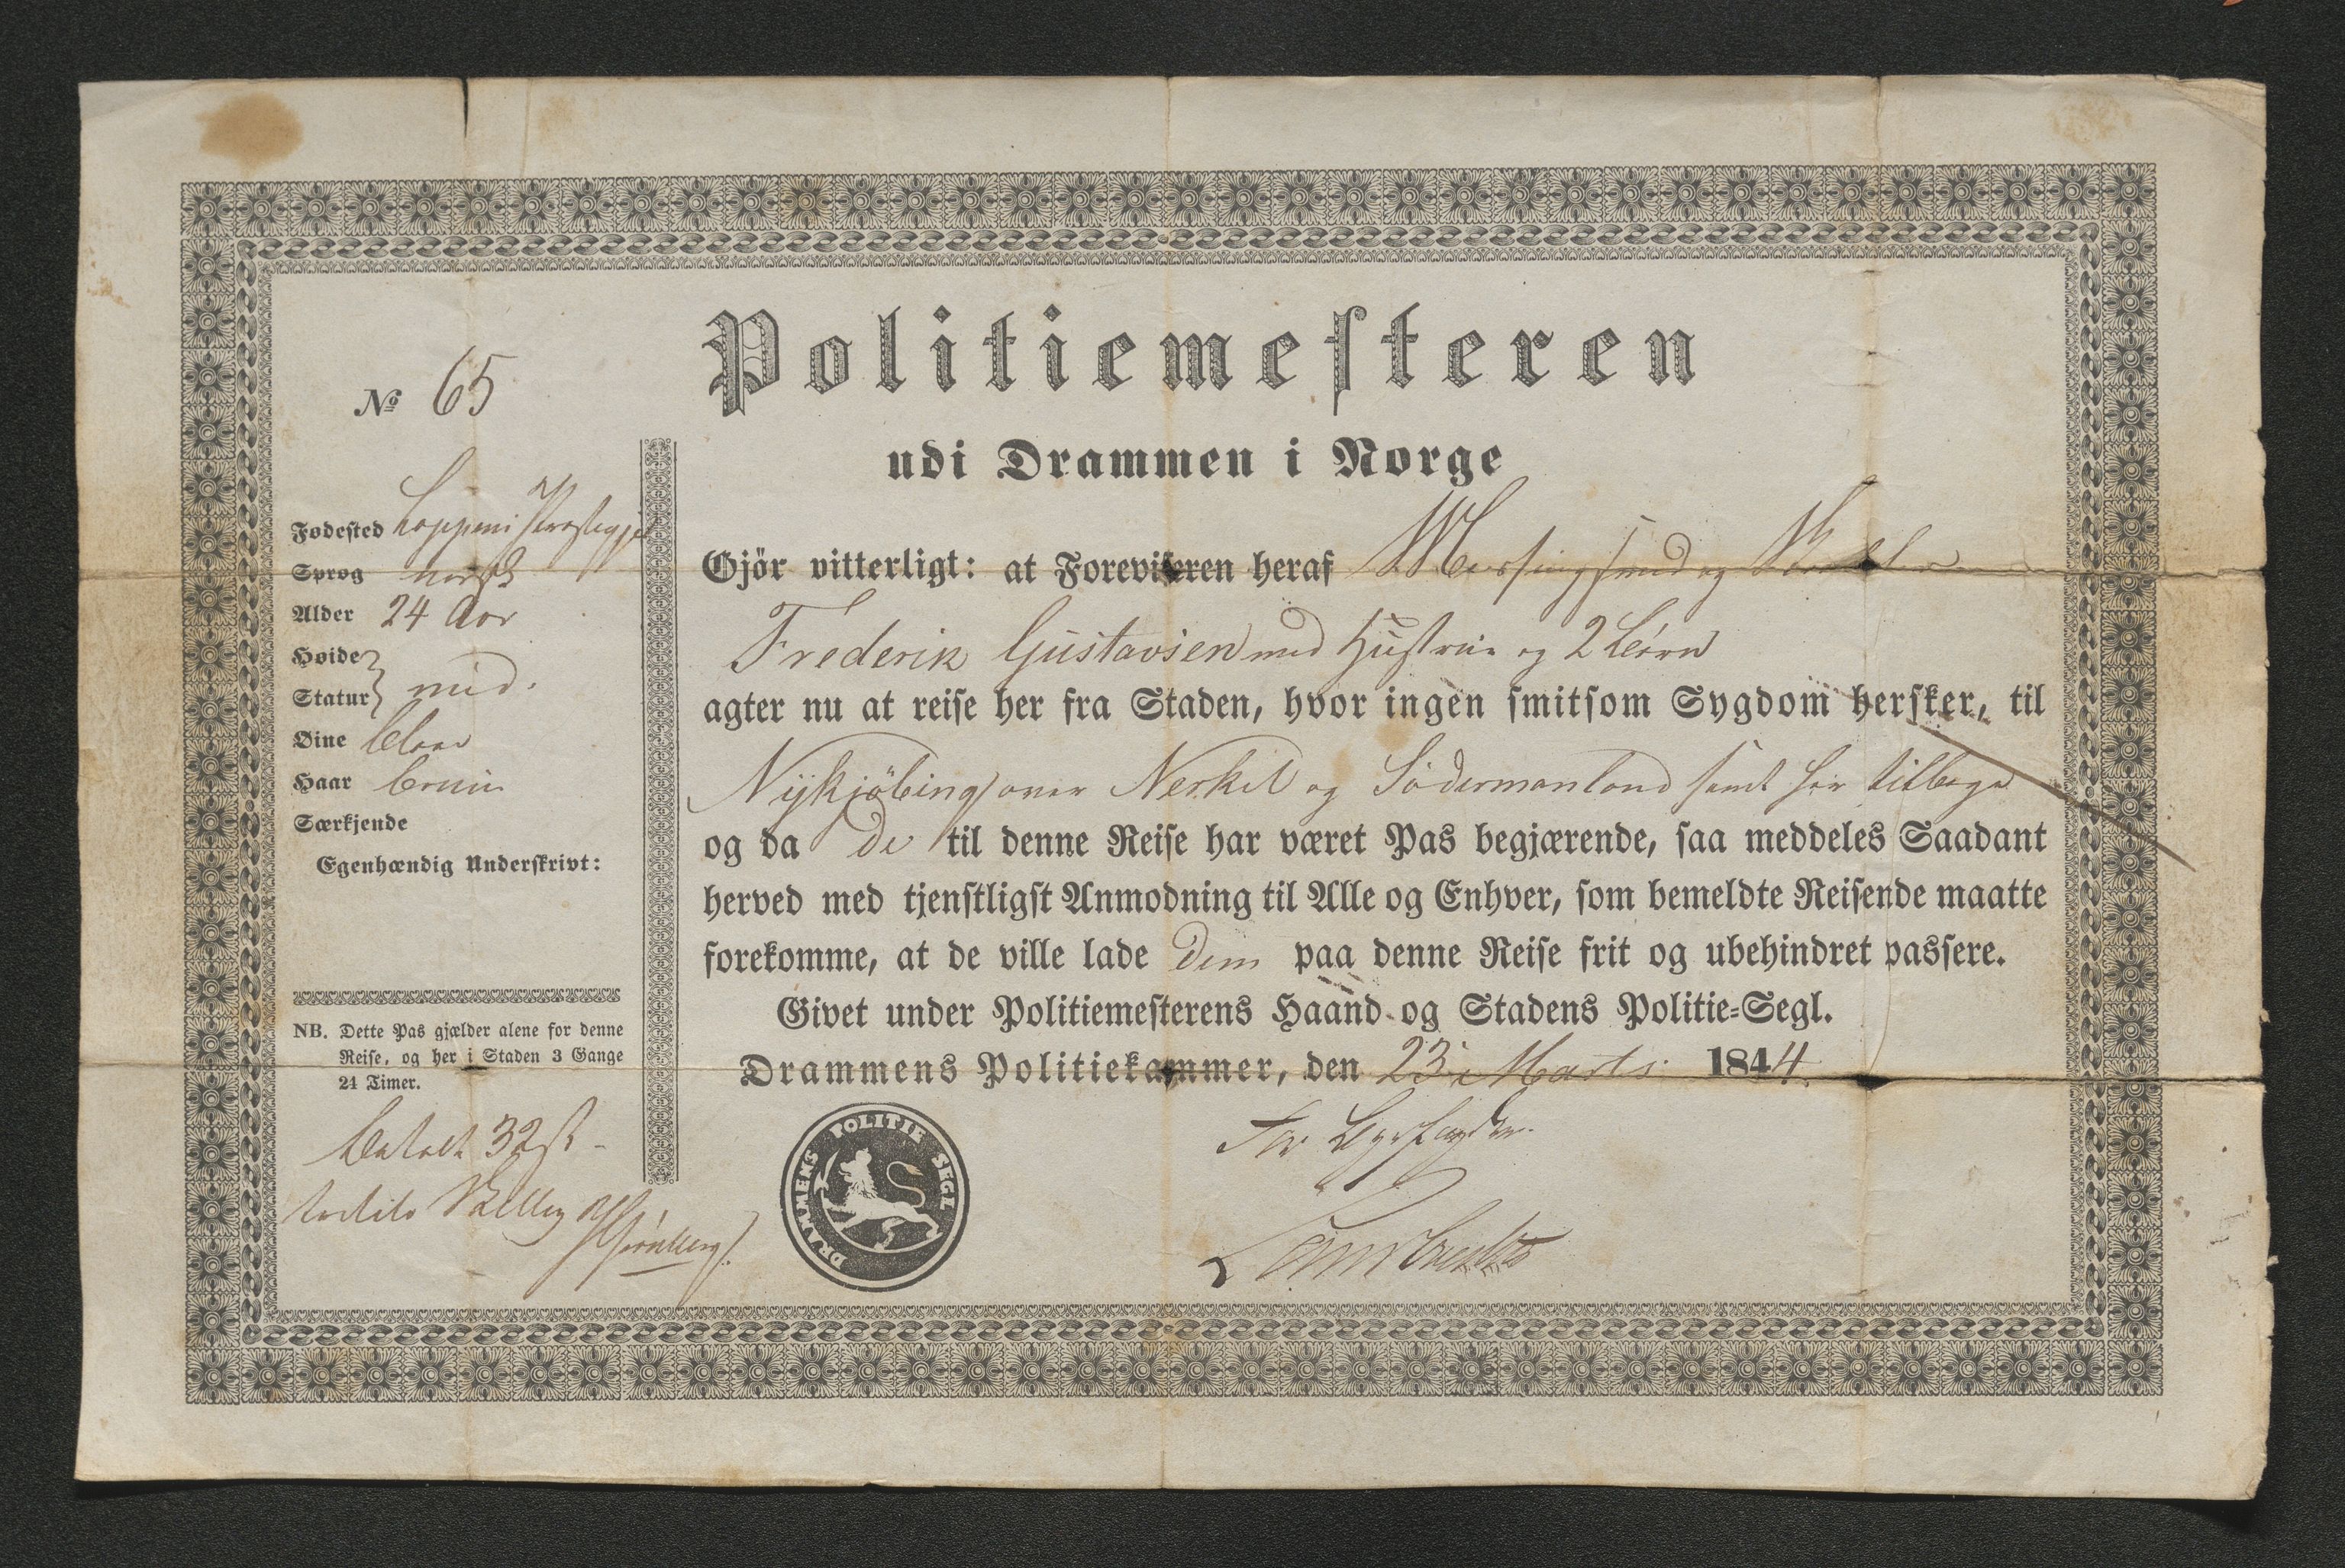 Politiemesteren
udi Drammen i Norge
No 65
Fødested Præstegjel
Sprog norsk
Alder 24 Aar
Høide
Statur } mid.
Øine blaae
Haar bruun
Særkjende
Egenhændig Underskrivt:
NB. Dette Pas gjælder alene for denne
Reise, og her i Staden 3 Gange
24 Timer.
betalt 32 sk
Gjör vitterligt: at Foreviseren heraf Messingsmed og
Frederik Gustavsen med Hustrue og 2 börn
agter nu at reise her fra Staden, hvor ingen smitsom Sygdom hersker, til
Nykjöbing over Nerkel og Södermanland samt her tilbage
og da de til denne Reise har været Pas begjærende, saa meddeles Saadant
herved med tjenstligst Anmodning til Alle og Enhver, som bemeldte Reisende maatte
forekomme, at de ville lade dem paa denne Reise frit og ubehindret passere.
Givet under Politiemesterens Haand og Stadens Politie=Segl.
Drammens Politiekammer, den 23 Marts 1844.
DRAMMENS POLITIE SEGL
For Byefogden